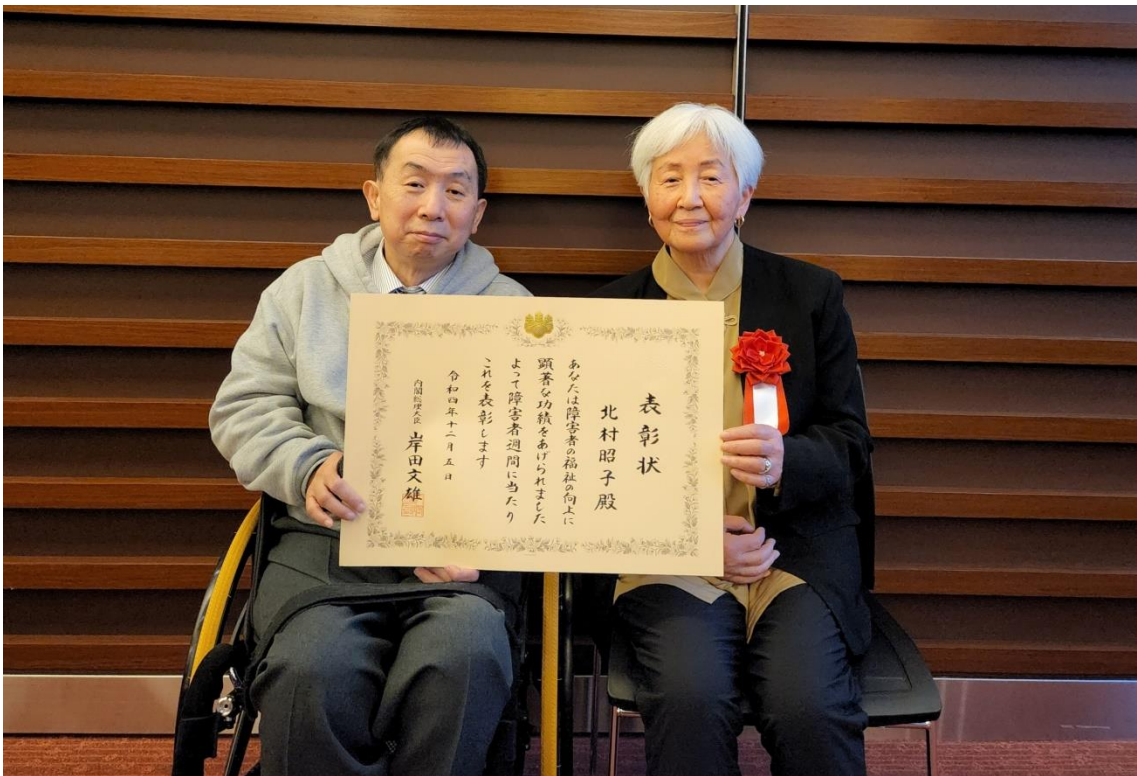 表彰状
北村昭子殿
あなたは障害者の福祉の向上に
顕著な功績をあげられました
よって障害者週間に当たり
これを表彰します
令和四年十二月五日
内閣総理大臣 岸田文雄